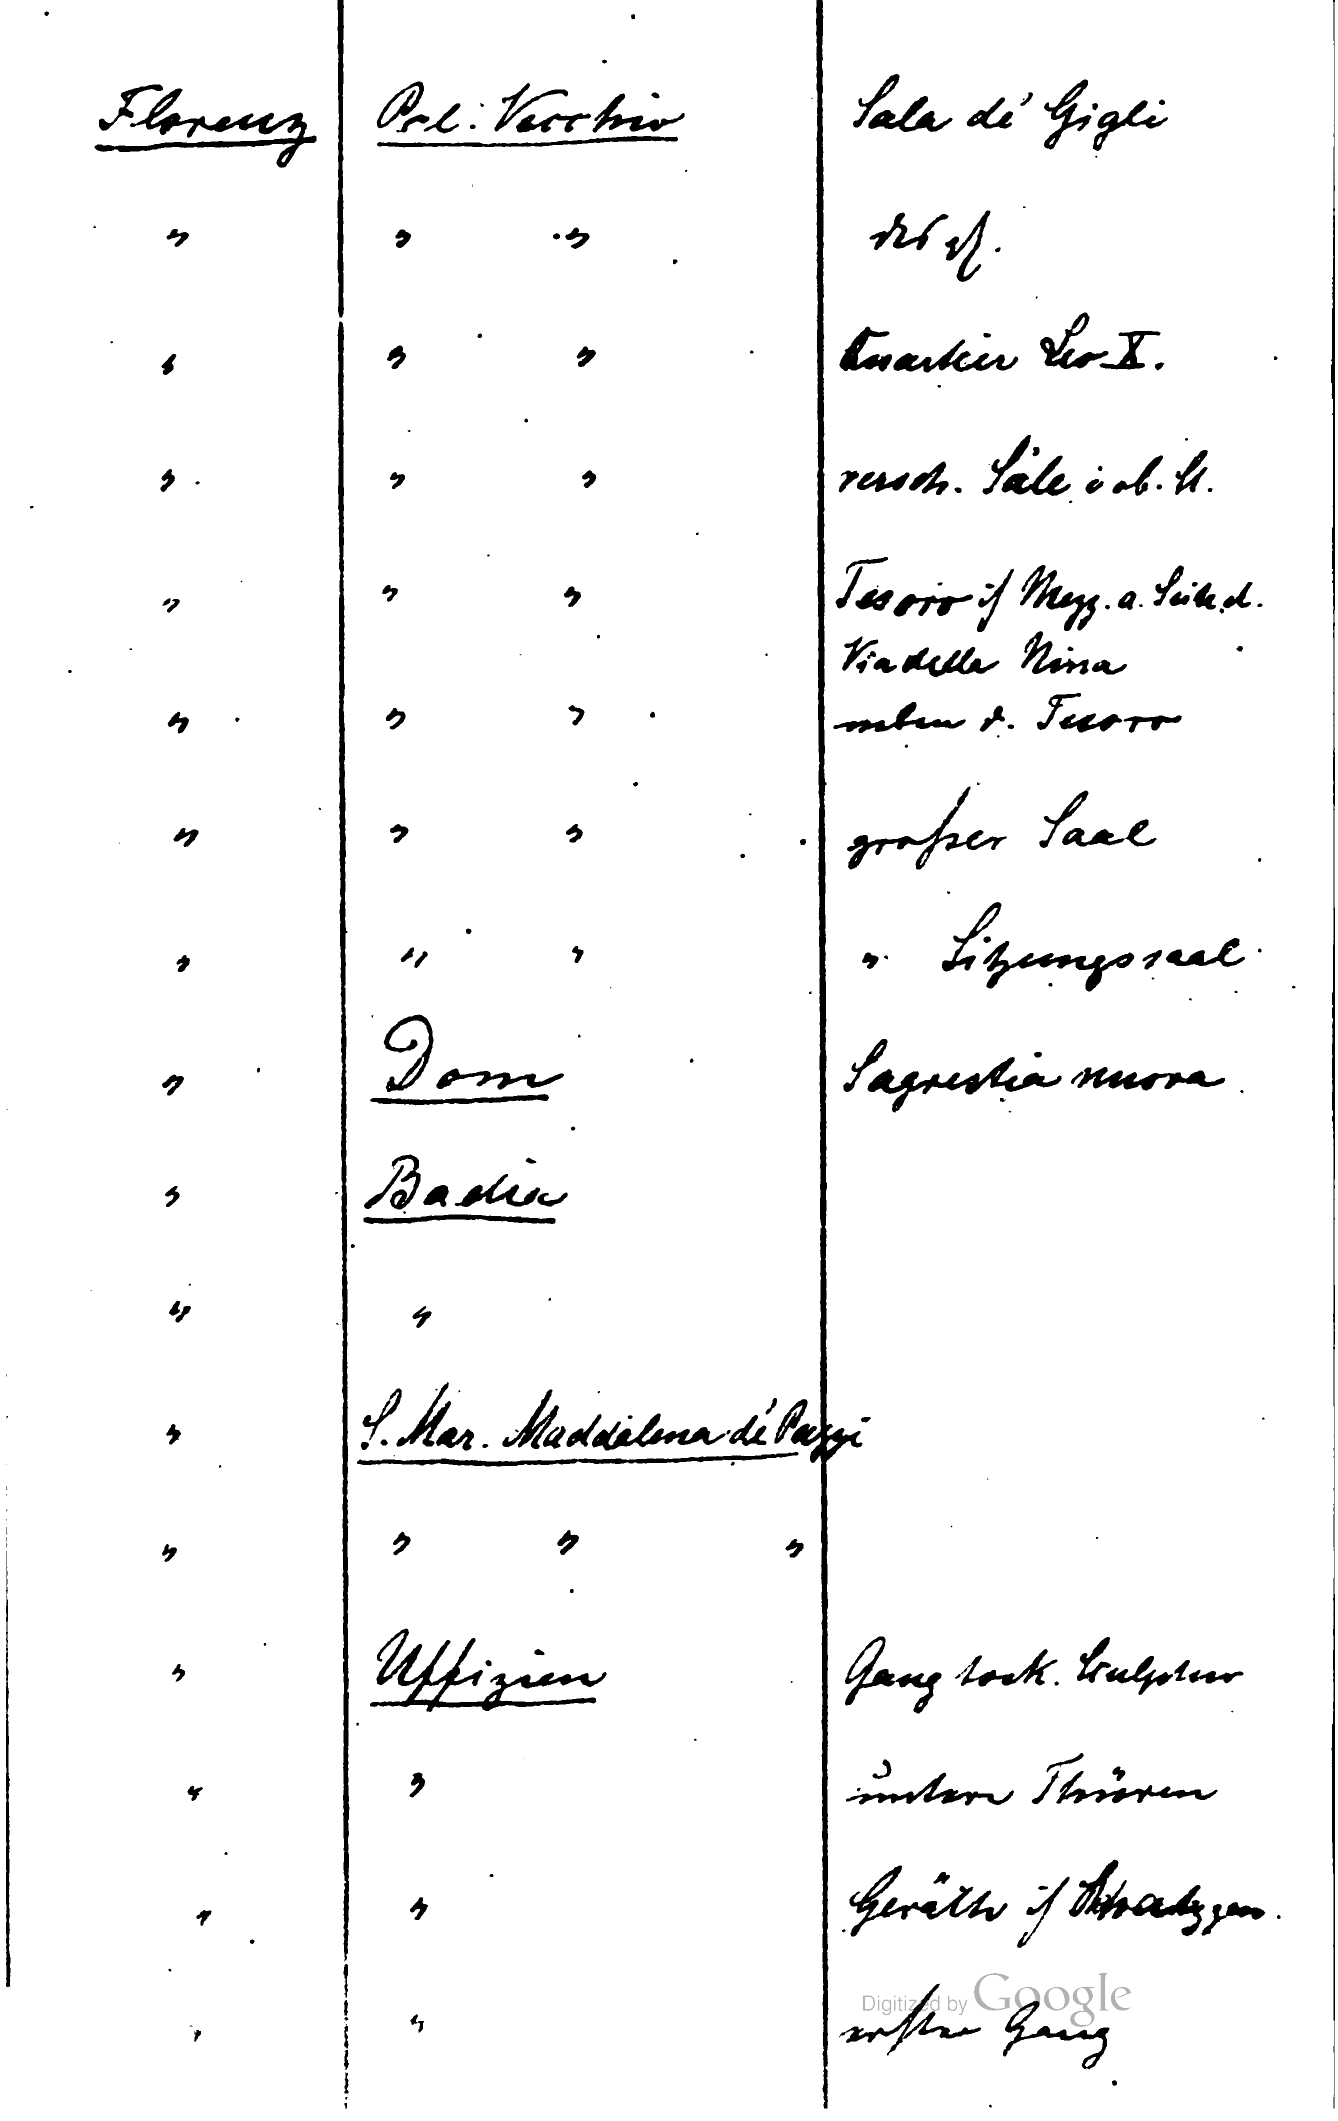 Florenz Pal: Vecchio Sala de' Gigli
" " " desgl.
" " " Quartier Leo X.
" " " versch. Säle i ob. St.
" " " Tesoro if Mezz. a. Seite d.
Via della Ninna
" " " neben d. Tesoro
" " " großer Saal
" " " " Sitzungssaal
" Dom Sagrestia nuova
" Badia
" "
" S. Mar. Maddalena de' Pazzi
" " " "
" Uffizien Gang tosk. Sculptur
" " untere Thüren
" " Geräth if
Digitized by Google
" " erster Gang